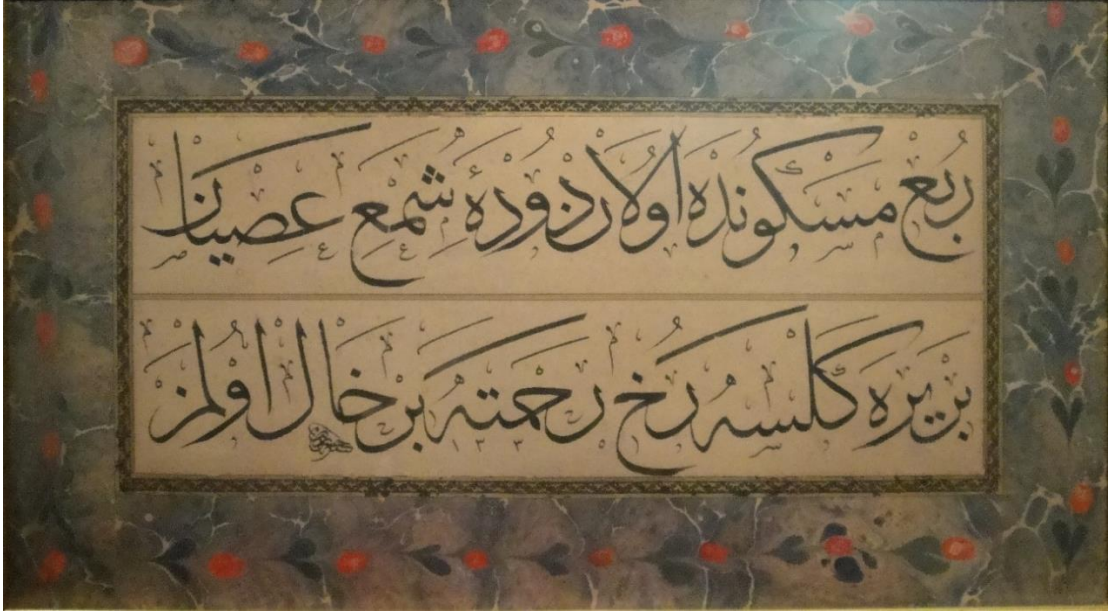 ربع مسكونده اولان دودۀ شمع عصيان
بر يره كلسه رخ رحمته بر خال اولمز